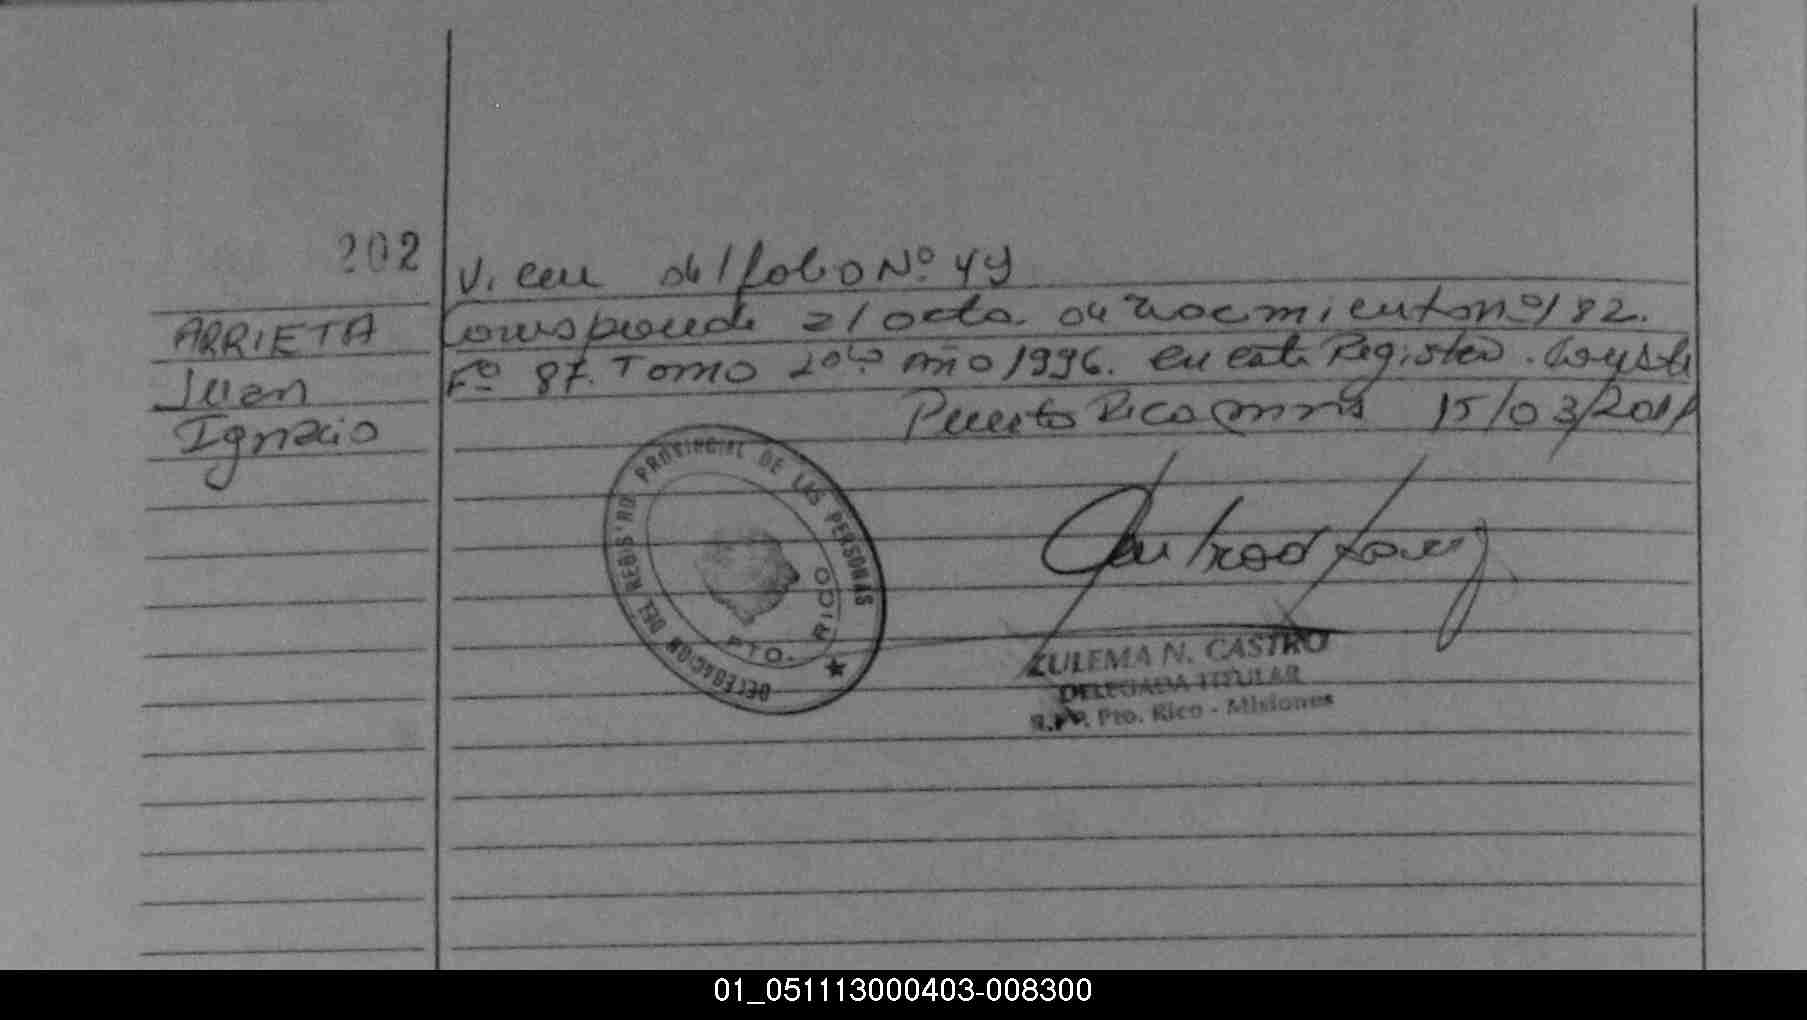 202
ARRIETA
Juan
Ignacio
V. ceu del folio Nº 49
Corresponde al acta de nacimiento nº 182.
Fº 87. Tomo 20 Año 1996. en este Registro. Conste
Puerto Rico mnes 15/03/2011
DELEGACION DEL REGISTRO PROVINCIAL DE LAS PERSONAS
PTO. RICO
ZULEMA N. CASTRO
DELEGADA TITULAR
R.P.P. Pto. Rico - Misiones
01_051113000403-008300